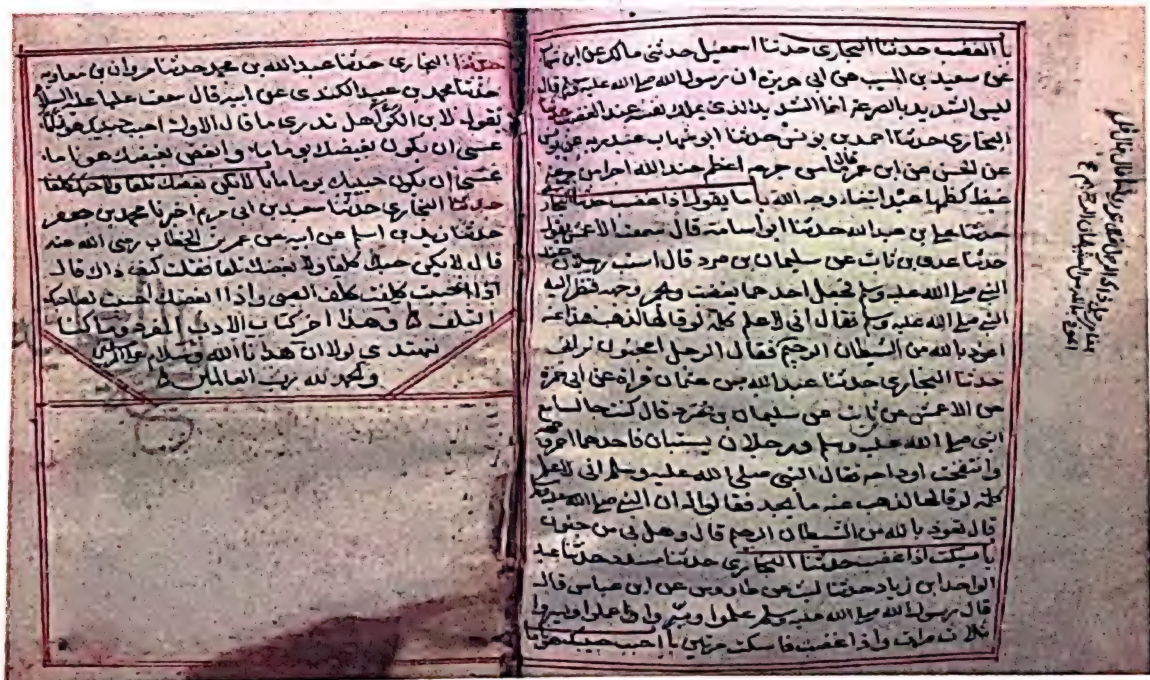 با الغضب حدثنا البخاري حدثنا اسمعيل حدثني مالك عن ابن شها
عن سعيد بن المسيب عن ابي هريرة ان رسول الله صلى الله عليه وسلم قال
ليس الشديد بالصرعة انما الشديد الذي يملك نفسه عند الغضب حدثنا
البخاري حدثنا احمد بن يونس حدثنا ابو شهاب عبد ربه عن يونس
عن الحسن عن ابن عمر قال ما من جرعة اعظم عند الله اجرا من جرعة
غيظ كظمها عبد ابتغاء وجه الله با ما يقول اذا غضب حدثنا البخار
حدثنا علي بن عبد الله حدثنا ابو اسامة قال سمعت الاعمش يقول
حدثنا عدي بن ثابت عن سليمان بن صرد قال استب رجلان عند
النبي صلى الله عليه وسلم فجعل احدهما يغضب ويحمر وجهه فنظر اليه
النبي صلى الله عليه وسلم فقال اني لاعلم كلمة لو قالها لذهب هذا عنه
اعوذ بالله من الشيطان الرجيم فقال الرجل امجنون تراني
حدثنا البخاري حدثنا عبد الله بن عثمان قراة عن ابي حمزة
عن الاعمش عن ثابت عن سليمان بن صرد قال كنت جالسا مع
النبي صلى الله عليه وسلم ورجلان يستبان فاحدهما احمر
وانتفخت اوداجه فقال النبي صلى الله عليه وسلم اني لاعلم
كلمة لو قالها لذهب عنه ما يجد فقالوا له ان النبي صلى الله عليه وسلم
قال تعوذ بالله من الشيطان الرجيم قال وهل بي من جنون
با يسكت اذا غضب حدثنا البخاري حدثنا مسدد حدثنا عبد
الواحد بن زياد حدثنا ليث عن طاووس عن ابن عباس قال
قال رسول الله صلى الله عليه وسلم علموا ويسروا علموا ويسروا
ثلاث مرات واذا غضبت فاسكت مرتين با احبب حبيبك هونا
حدثنا البخاري حدثنا عبد الله بن محمد حدثنا مروان بن معاوية
حدثنا محمد بن عبيد الكندي عن ابيه قال سمعت عليا عليه السلام
يقول لابن الكوا هل تدري ما قال الاول احبب حبيبك هونا ما
عسى ان يكون بغيضك يوما ما وابغض بغيضك هونا ما
عسى ان يكون حبيبك يوما ما با لا يكن بغضك تلفا ولا حبك كلفا
حدثنا البخاري حدثنا سعيد بن ابي مريم اخبرنا محمد بن جعفر
حدثنا زيد بن اسلم عن ابيه عن عمر بن الخطاب رضي الله عنه
قال لا يكن حبك كلفا ولا بغضك تلفا فقلت كيف ذاك قال
اذا احببت كلفت كلف الصبي واذا ابغضت احببت لصاحبك
التلف وهذا اخر كتاب الادب المفرد وما كنا
لنهتدي لولا ان هدانا الله وسلام على المرسلين
والحمد لله رب العالمين